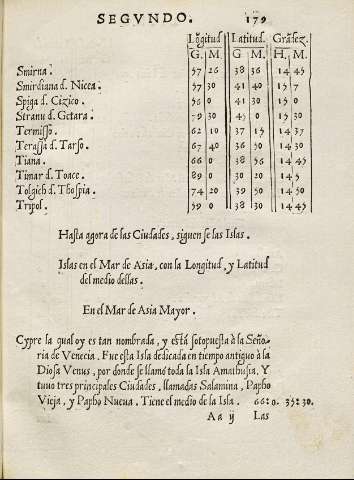 SEGVNDO. 179
Lõgitud Latitud. Grãdez.
G. M. G. M. H. M.
Smirna. 57 26 38 36 14 45
Smirdiana d. Nicea. 57 30 41 40 15 7
Spiga d. Cizico. 56 0 41 30 15 0
Stranu d. Getara. 79 30 45 0 15 30
Termisso. 62 10 37 15 14 37
Terassa d. Tarso. 67 40 36 50 14 30
Tiana. 66 0 38 56 14 45
Timar d. Toace. 89 0 30 20 14 0
Tolgich d. Thospia. 74 20 39 50 14 50
Tripol. 59 0 38 30 14 45
Hasta agora de las Ciudades, siguen se las Islas.
Islas en el Mar de Asia, con la Longitud, y Latitud
del medio dellas.
En el Mar de Asia Mayor.
Cypre la qual oy es tan nombrada, y está sotopuesta à la Seño-
ria de Venecia. Fue esta Isla dedicada en tiempo antiguo à la
Diosa Venus, por donde se llamó toda la Isla Amathusia. Y
tuuo tres principales Ciudades, llamadas Salamina, Papho
Vieja, y Papho Nueua. Tiene el medio de la Isla. 66:0. 35:30.
Aa ij Las